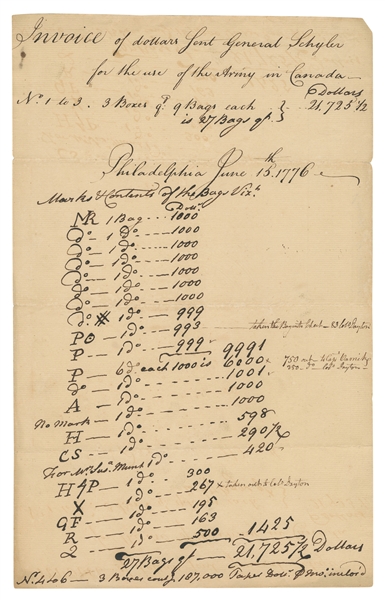 Invoice of dollars Sent General Schyler
for the use of the Army in Canada
Dollars
No. 1 to 3. 3 Boxes qt. 9 Bags each } 21,725 1/2
is 27 Bags qt. }
Philadelphia June 15th. 1776
Marks & Contents of the Bags Vizt.
Dolls.
MR 1 Bag 1000
Do 1 do 1000
Do 1 do 1000
Do 1 do 1000
Do 1 do 1000
do 1 do 1000
do 1 do 999
PO 1 do 993
P 1 do 999 9991
P 6 do each 1000 is 6000
do 1 do 1001
A 1 do 1000
No Mark 1 do 598
H 1 do 290 1/2
CS 1 do 420
For Mr. Jas. 1 do 300
H 4P 1 do 267 x taken out
X 1 do 195
GF 1 do 163
R 1 do 500 1425
2 27 Bags qt 21,725 1/2 Dollars
No. 4 to 6 3 Boxes 187,000 Paper Dolls.